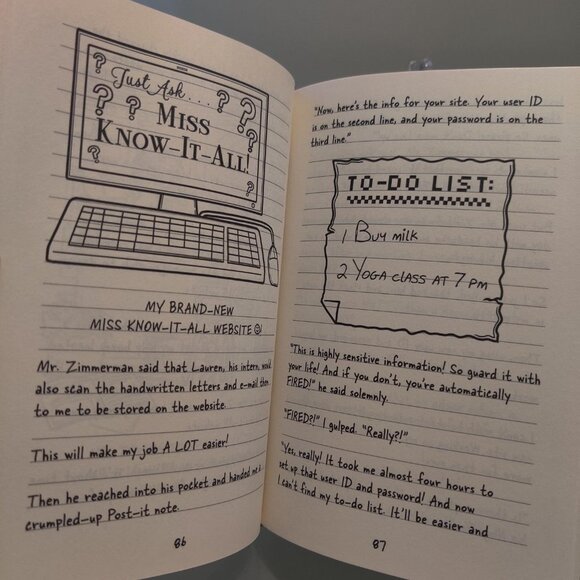 Just Ask...
MISS
KNOW-IT-ALL!
MY BRAND-NEW
MISS KNOW-IT-ALL WEBSITE ☺!
Mr. Zimmerman said that Lauren, his intern, would
also scan the handwritten letters and e-mail them
to me to be stored on the website.
This will make my job A LOT easier!
Then he reached into his pocket and handed me a
crumpled-up Post-it note.
86
"Now, here's the info for your site. Your user ID
is on the second line, and your password is on the
third line."
TO-DO LIST:
1 BUY MILK
2 YOGA CLASS AT 7 PM
"This is highly sensitive information! So guard it with
your life! And if you don't, you're automatically
FIRED!" he said solemnly.
"FIRED?!" I gulped. "Really?!"
"Yes, really! It took me almost four hours to
set up that user ID and password! And now
I can't find my to-do list. It'll be easier and
87